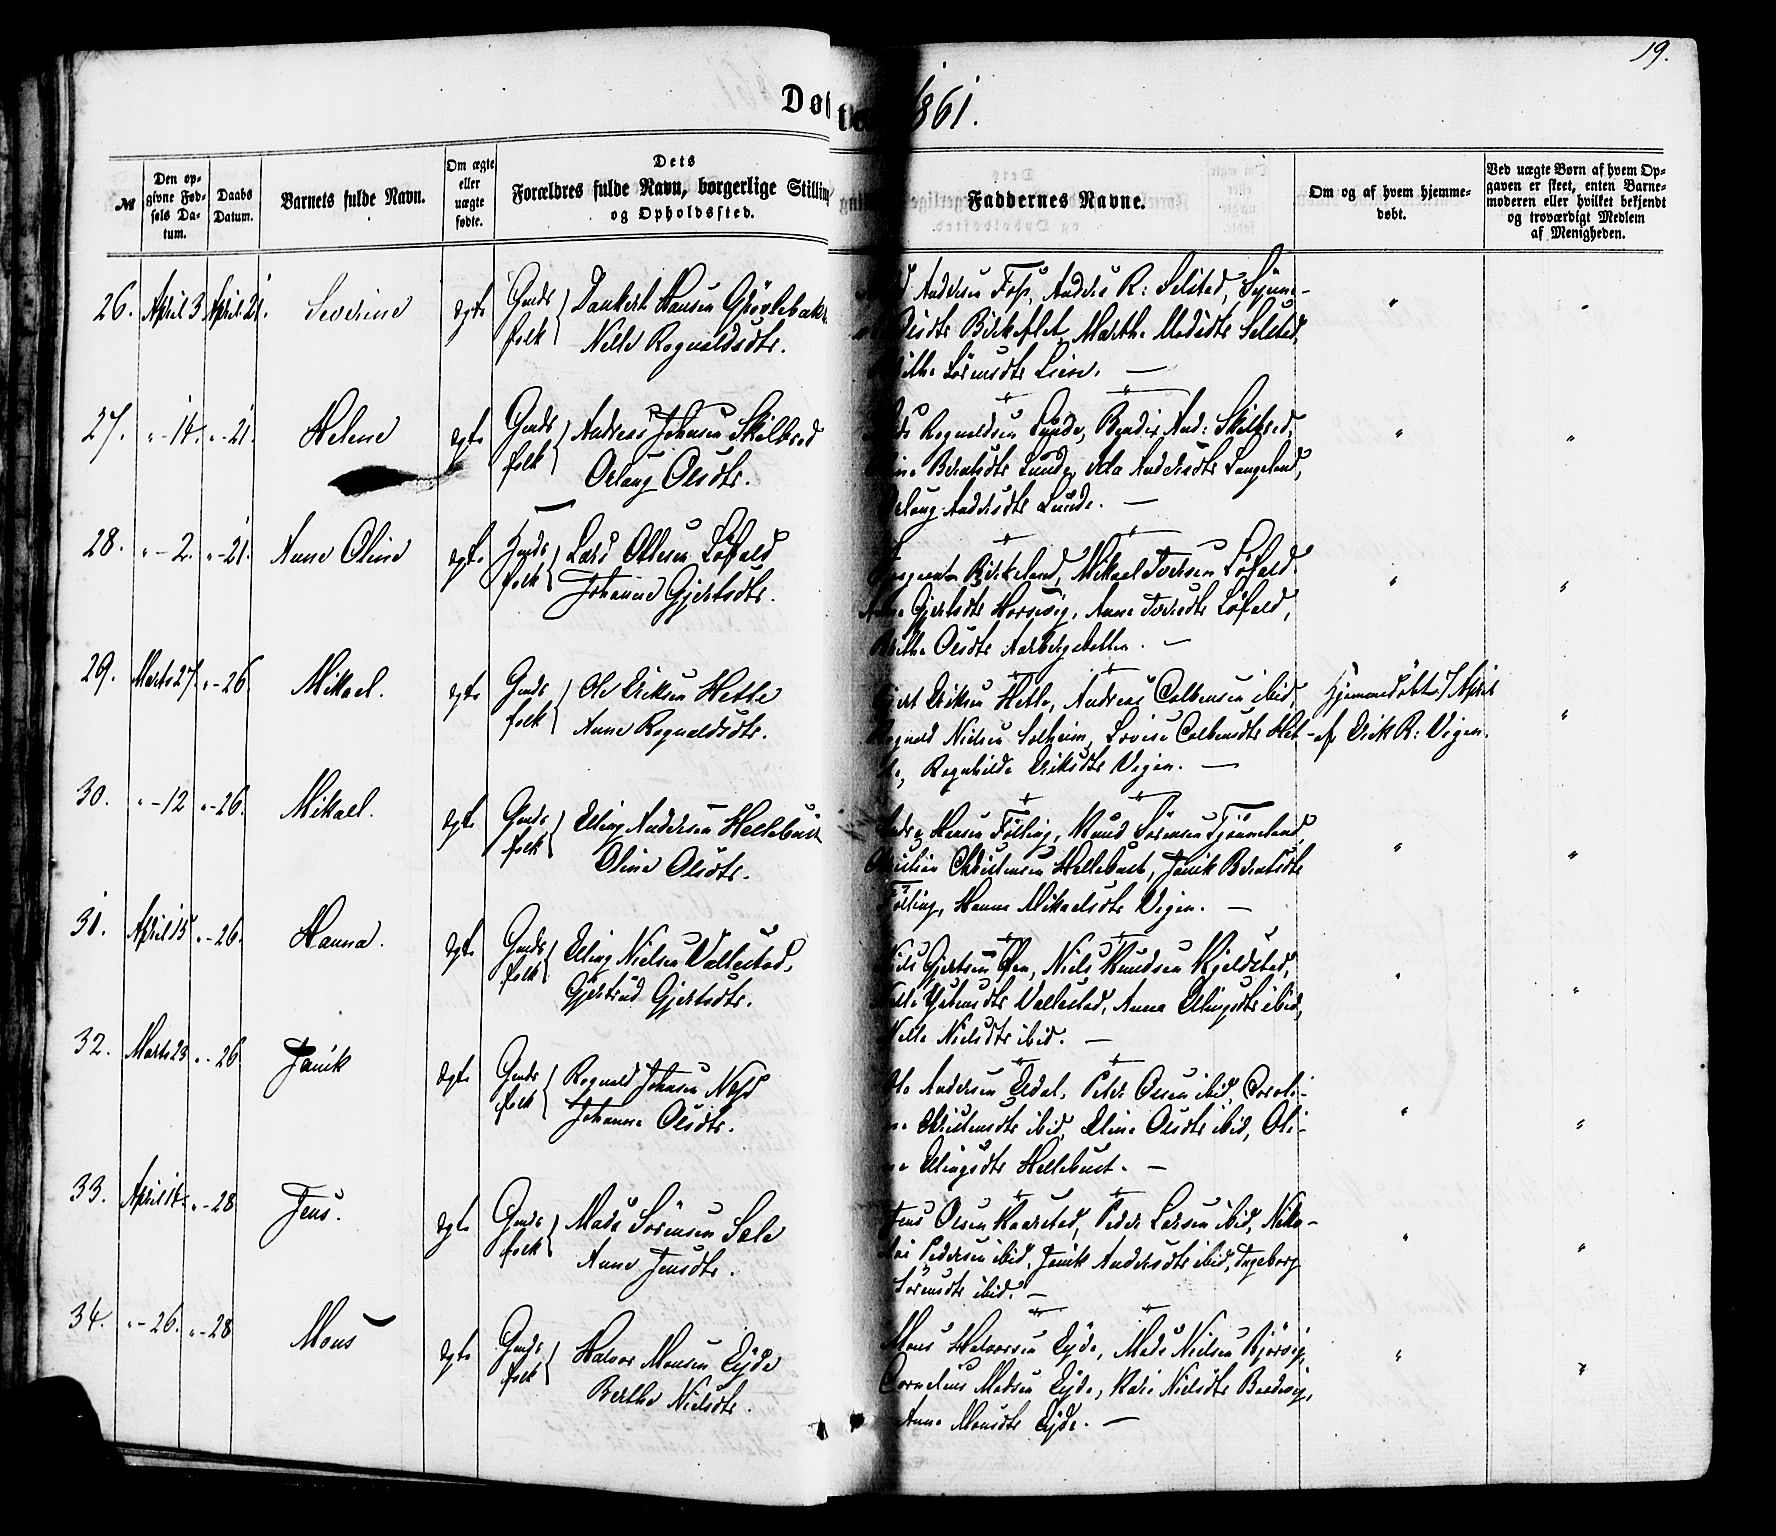 19.
Døb
te 1861.
№
Den op-
givne Fød-
sels Da-
tum.
Daabs
Datum.
Barnets fulde Navn.
Om ægte
eller
uægte
fødte.
Dets
Forældres fulde Navn, borgerlige Stilling
og Opholdssted.
Faddernes Navne.
Om og af hvem hjemme-
døbt.
Ved uægte Børn af hvem Op-
gaven er skeet, enten Barne-
moderen eller hvilket bekjendt
og troværdigt Medlem
af Menigheden.
26. April 3. April 21. Severine ægte Gmds folk Dankert Hansen
Nille Rognaldsdtr.
Andersen Foss, Anders R: Selstad, Synne-
Olsdtr Birkeflet, Marthe Madsdtr Selstad,
Sørensdtr Lien. —
27. " - 14. " - 21. Helene ægte Gmds folk Andreas Johnsen Skilbred
Oelaug Olsdtr.
Rognaldsen Lunde, And: Skilbred,
Berntsdtr Lunde, Andersdtr Langeland,
Andersdtr Lunde. —
28. " - 2. " - 21. Anne Oline ægte folk Lars Ottesen Løfald
Johanne Gjertsdtr.
Birkeland, Mikael Iversen Løfald.
Gjertsdtr Horsevig, Anne Iversdtr Løfald,
Olsdtr —
29. Marts 27 " - 26 Mikael. ægte Gmds folk Ole Eriksen Hetle
Anne Rognaldsdtr.
Gjert Eriksen Hetle, Andreas Colbensen ibid,
Rognald Nielsen Solheim, Lovise Colbensdtr Het-
le, Ragnhilde Eriksdtr Vigen. —
Hjemmedøbt 7 April
af Erik R: Vigen.
30. " - 12 " - 26. Mikael. ægte Gmds folk Elling Andersen Hellebust
Oline Olsdtr.
Hansen Følling, Knud Sørensen Tjønneland
Christian Christensen Hellebust, Janik Berntsdtr
Følling, Hanna Mikaelsdtr Vigen. —
31. April 15 " - 26. Hanna. ægte Gmds folk Elling Nielsen Vallestad,
Gjertrud Gjertsdtr.
Niels Gjertsen Øen, Niels Knudsen Kjeldstad,
Vallestad, Anna Ellingsdtr ibid,
Nille Nielsdtr ibid. —
32. Marts 23 " - 26 Janik ægte Gmds folk Rognald Johnsen Nes
Johanne Olsdtr.
Ole Andersen Eldal, Peder Olsen ibid, Caroli-
ne Christensdtr ibid, Eline Olsdtr ibid, Oli-
ne Ellingsdtr Hellebust. —
33. April 14. " - 28 Jens. ægte Gmds folk Mads Sørensen Sæle
Anne Jensdtr.
Jens Olsen Kaarstad, Peder Larsen ibid, Niko-
lai Pedersen ibid, Janik Andersdtr ibid, Ingeborg
Sørensdtr ibid. —
34. " - 26. " - 28 Mons ægte Gmds folk Halvor Monsen Eyde
Berthe Nielsdtr.
Mons Halvorsen Eyde, Mads Nielsen Bjørvig,
Cornelius Madsen Eyde, Kari Nielsdtr
Anne Monsdtr Eyde. —